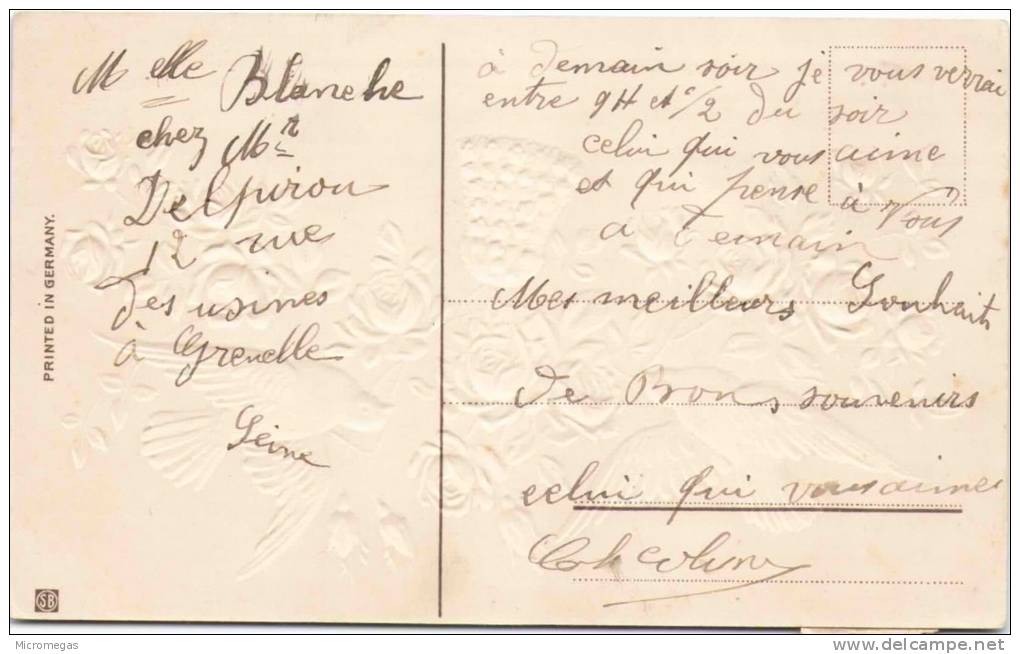 à demain soir je vous verrai
entre 9H et 1/2 du soir
celui qui vous aime
et qui pense à vous
a demain
Mes meilleurs Souhaits
de Bons souvenirs
celui qui vous aime
Melle Blanche
chez Mr
Delpirou
12 rue
des usines
à Grenelle
Seine
PRINTED IN GERMANY.
SB
Micromegas
www.delcampe.net